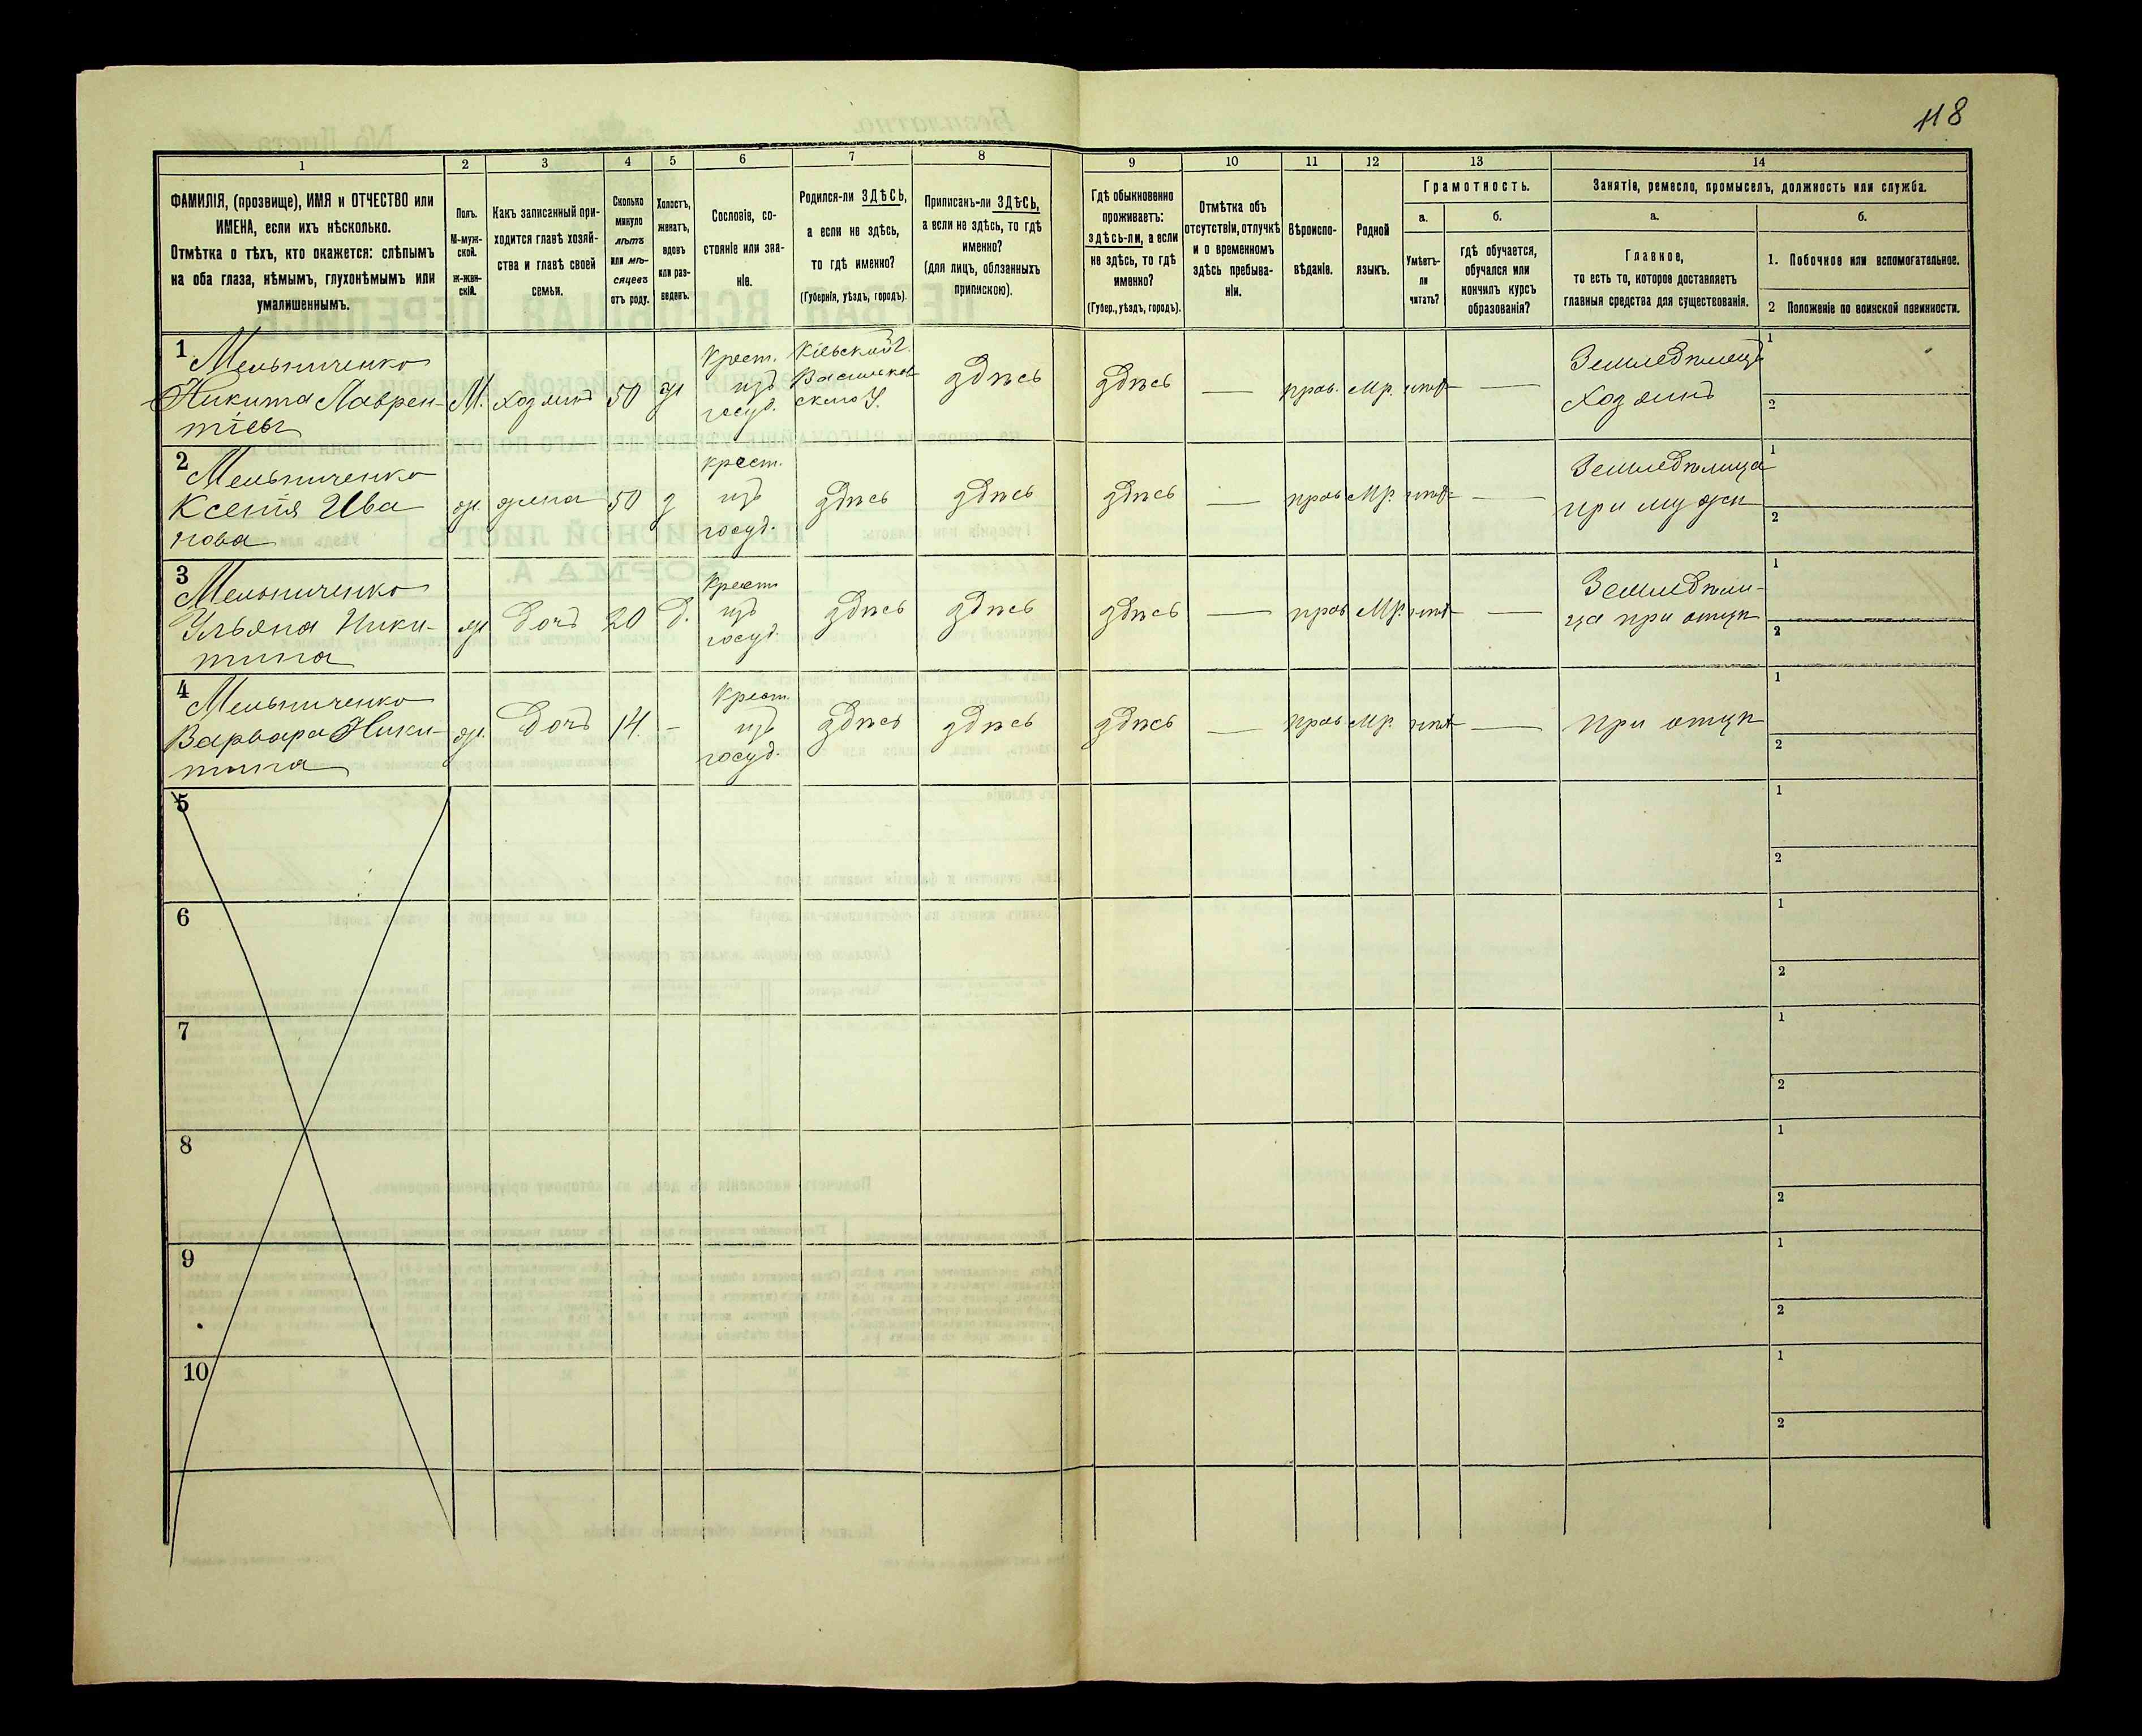 118
1 2 3 4 5 6 7 8 9 10 11 12 13 14
ФАМИЛІЯ, (прозвище), ИМЯ и ОТЧЕСТВО или
ИМЕНА, если ихъ нѣсколько.
Отмѣтка о тѣхъ, кто окажется: слѣпымъ
на оба глаза, нѣмымъ, глухонѣмымъ или
умалишеннымъ.
Полъ.
М-муж-
ской.
ж-жен-
скій.
Какъ записанный при-
ходится главѣ хозяй-
ства и главѣ своей
семьи.
Сколько
минуло
лѣтъ
или мѣ-
сяцевъ
отъ роду.
Холостъ,
женатъ,
вдовъ
или раз-
веденъ.
Сословіе, со-
стояніе или зва-
ніе.
Родился-ли ЗДѢСЬ,
а если не здѣсь,
то гдѣ именно?
(Губернія, уѣздъ, городъ).
Приписанъ-ли ЗДѢСЬ,
а если не здѣсь, то гдѣ
именно?
(для лицъ, обязанныхъ
припискою).
Гдѣ обыкновенно
проживаетъ:
здѣсь-ли, а если
не здѣсь, то гдѣ
именно?
(Губер., уѣздъ, городъ).
Отмѣтка объ
отсутствіи, отлучкѣ
и о временномъ
здѣсь пребыва-
ніи.
Вѣроиспо-
вѣданіе.
Родной
языкъ.
Грамотность.
а.
Умѣетъ-
ли
читать?
б.
гдѣ обучается,
обучался или
кончилъ курсъ
образованія?
Занятіе, ремесло, промыселъ, должность или служба.
а.
Главное,
то есть то, которое доставляетъ
главныя средства для существованія.
б.
1. Побочное или вспомогательное.
2 Положеніе по воинской повинности.
1
Мельниченко
Никита Лаврен-
тіевъ
М.
хозяинъ
50
ж
Крест.
изъ
госуд.
Кіевской г.
Васильков
скаго У.
здѣсь
здѣсь
—
прав.
Мр.
нѣтъ
—
Земледѣлецъ
хозяинъ
1
2
2
Мельниченко
Ксенія Ива
нова
ж.
жена
50
з
крест.
изъ
госуд.
здѣсь
здѣсь
здѣсь
—
прав
Мр.
нѣтъ
—
Земледѣлица
при мужѣ
1
2
3
Мельниченко
Ульяна Ники-
тина
ж
дочь
20
д.
Крест
изъ
госуд.
здѣсь
здѣсь
здѣсь
—
прав
Мр.
нѣтъ
—
Земледѣли-
ца при отцѣ
1
2
4
Мельниченко
Варвара Ники-
тина
ж.
дочь
14.
-
Крест.
изъ
госуд.
здѣсь
здѣсь
здѣсь
—
прав.
Мр.
нѣтъ
—
при отцѣ
1
2
5
1
2
6
1
2
7
1
2
8
1
2
9
1
2
10
1
2